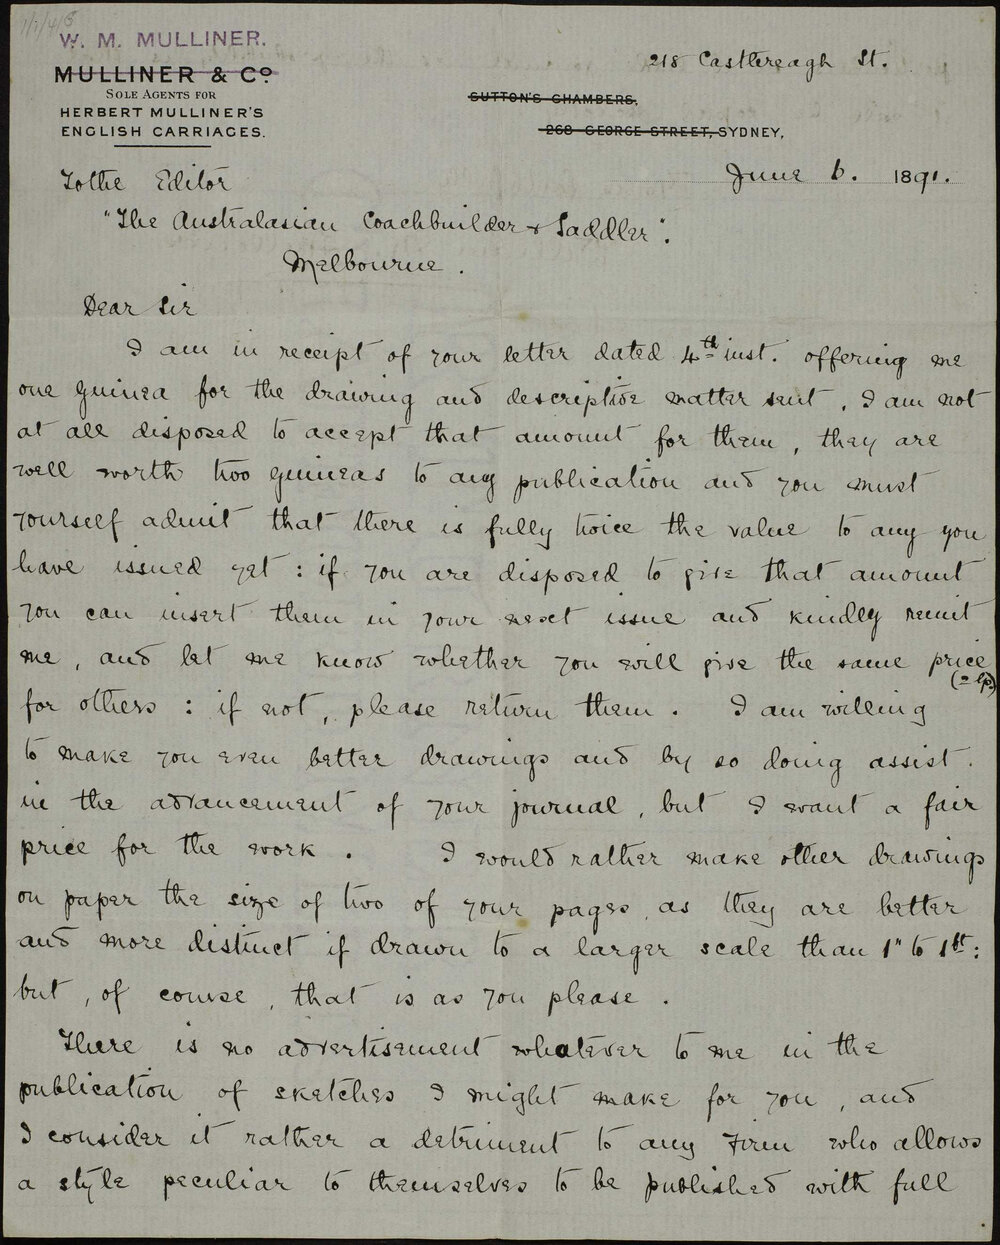 W. M. MULLINER.
MULLINER & Co
SOLE AGENTS FOR
HERBERT MULLINER'S
ENGLISH CARRIAGES.
218 Castlereagh St.
SUTTON'S CHAMBERS,
268 GEORGE STREET, SYDNEY,
June 6. 1891.
To the Editor
"The Australasian Coachbuilder & Saddler".
Melbourne.
Dear Sir
I am in receipt of your letter dated 4th inst. offering me
one guinea for the drawing and descriptive matter sent, I am not
at all disposed to accept that amount for them, they are
well worth two guineas to any publication and you must
yourself admit that there is fully twice the value to any you
have issued yet: if you are disposed to give that amount
you can insert them in your next issue and kindly remit
me, and let me know whether you will give the same price
for others: if not, please return them. I am willing
to make you even better drawings and by so doing assist
in the advancement of your journal, but I want a fair
price for the work. I would rather make other drawings
on paper the size of two of your pages, as they are better
and more distinct if drawn to a larger scale than 1" to 1ft:
but, of course, that is as you please.
There is no advertisement whatever to me in the
publication of sketches I might make for you, and
I consider it rather a detriment to any Firm who allows
a style peculiar to themselves to be published with full